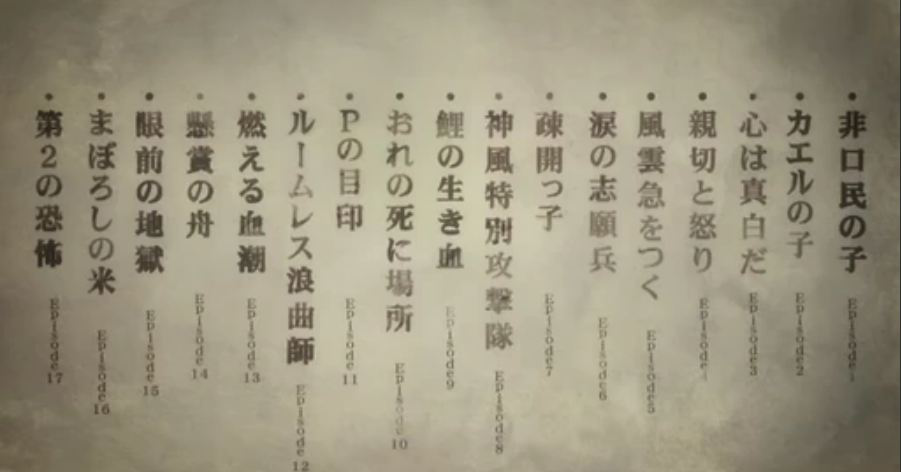 ・非口民の子 Episode1
・カエルの子 Episode2
・心は真白だ Episode3
・親切と怒り Episode4
・風雲急をつく Episode5
・涙の志願兵 Episode6
・疎開っ子 Episode7
・神風特別攻撃隊 Episode8
・鯉の生き血 Episode9
・おれの死に場所 Episode10
・Pの目印 Episode11
・ルームレス浪曲師 Episode12
・燃える血潮 Episode13
・懸賞の舟 Episode14
・眼前の地獄 Episode15
・まぼろしの米 Episode16
・第2の恐怖 Episode17